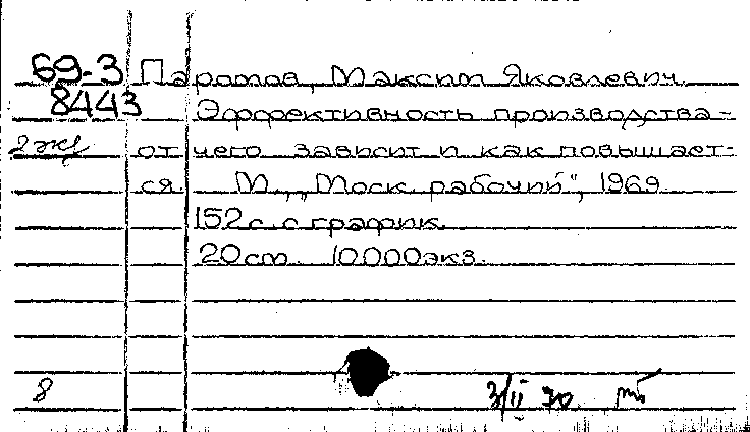 69-3 Паромов, Максим Яковлевич.
8443 Эффективность производства-
2 экз от чего зависит и как повышает-
ся. М., „Моск. рабочий", 1969.
152 с. с график.
20 см. 10000 экз.
8 3/II 70